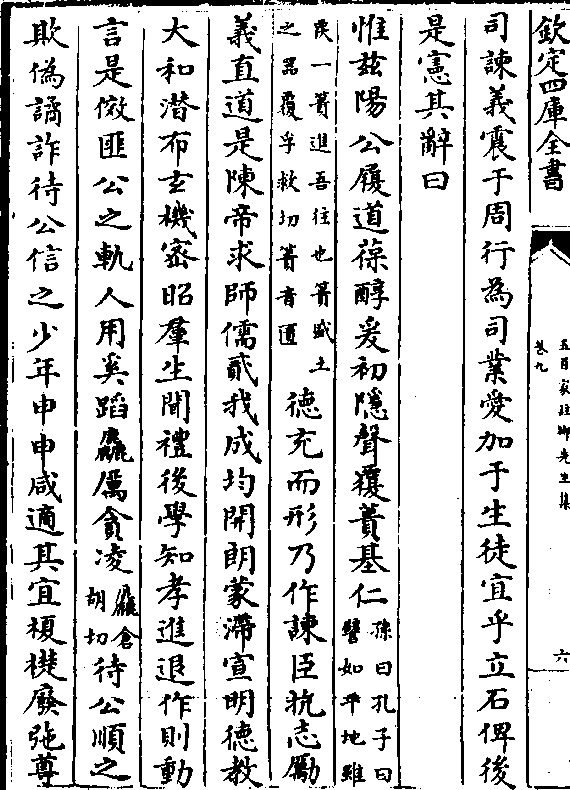 欽定四庫全書
五百家注柳先生集
卷九
六
司諫義震于周行為司業愛加于生徒宜乎立石俾後
是憲其辭曰
惟兹陽公履道葆醇爰初隱聲覆蕢基仁孫曰孔子曰譬如平地雖
覆一簣進吾往也簣盛土之器覆孚救切簣音匱德充而形乃作諫臣抗志勵
義直道是陳帝求師儒貳我成均開朗蒙滯宣明德教
大和潛布玄機密昭羣生聞禮後學知孝進退作則動
言是儆匪公之軌人用奚蹈麤厲貪凌麤倉胡切待公順之
欺偽譎詐待公信之少年申申咸適其宜榎楚廢弛尊